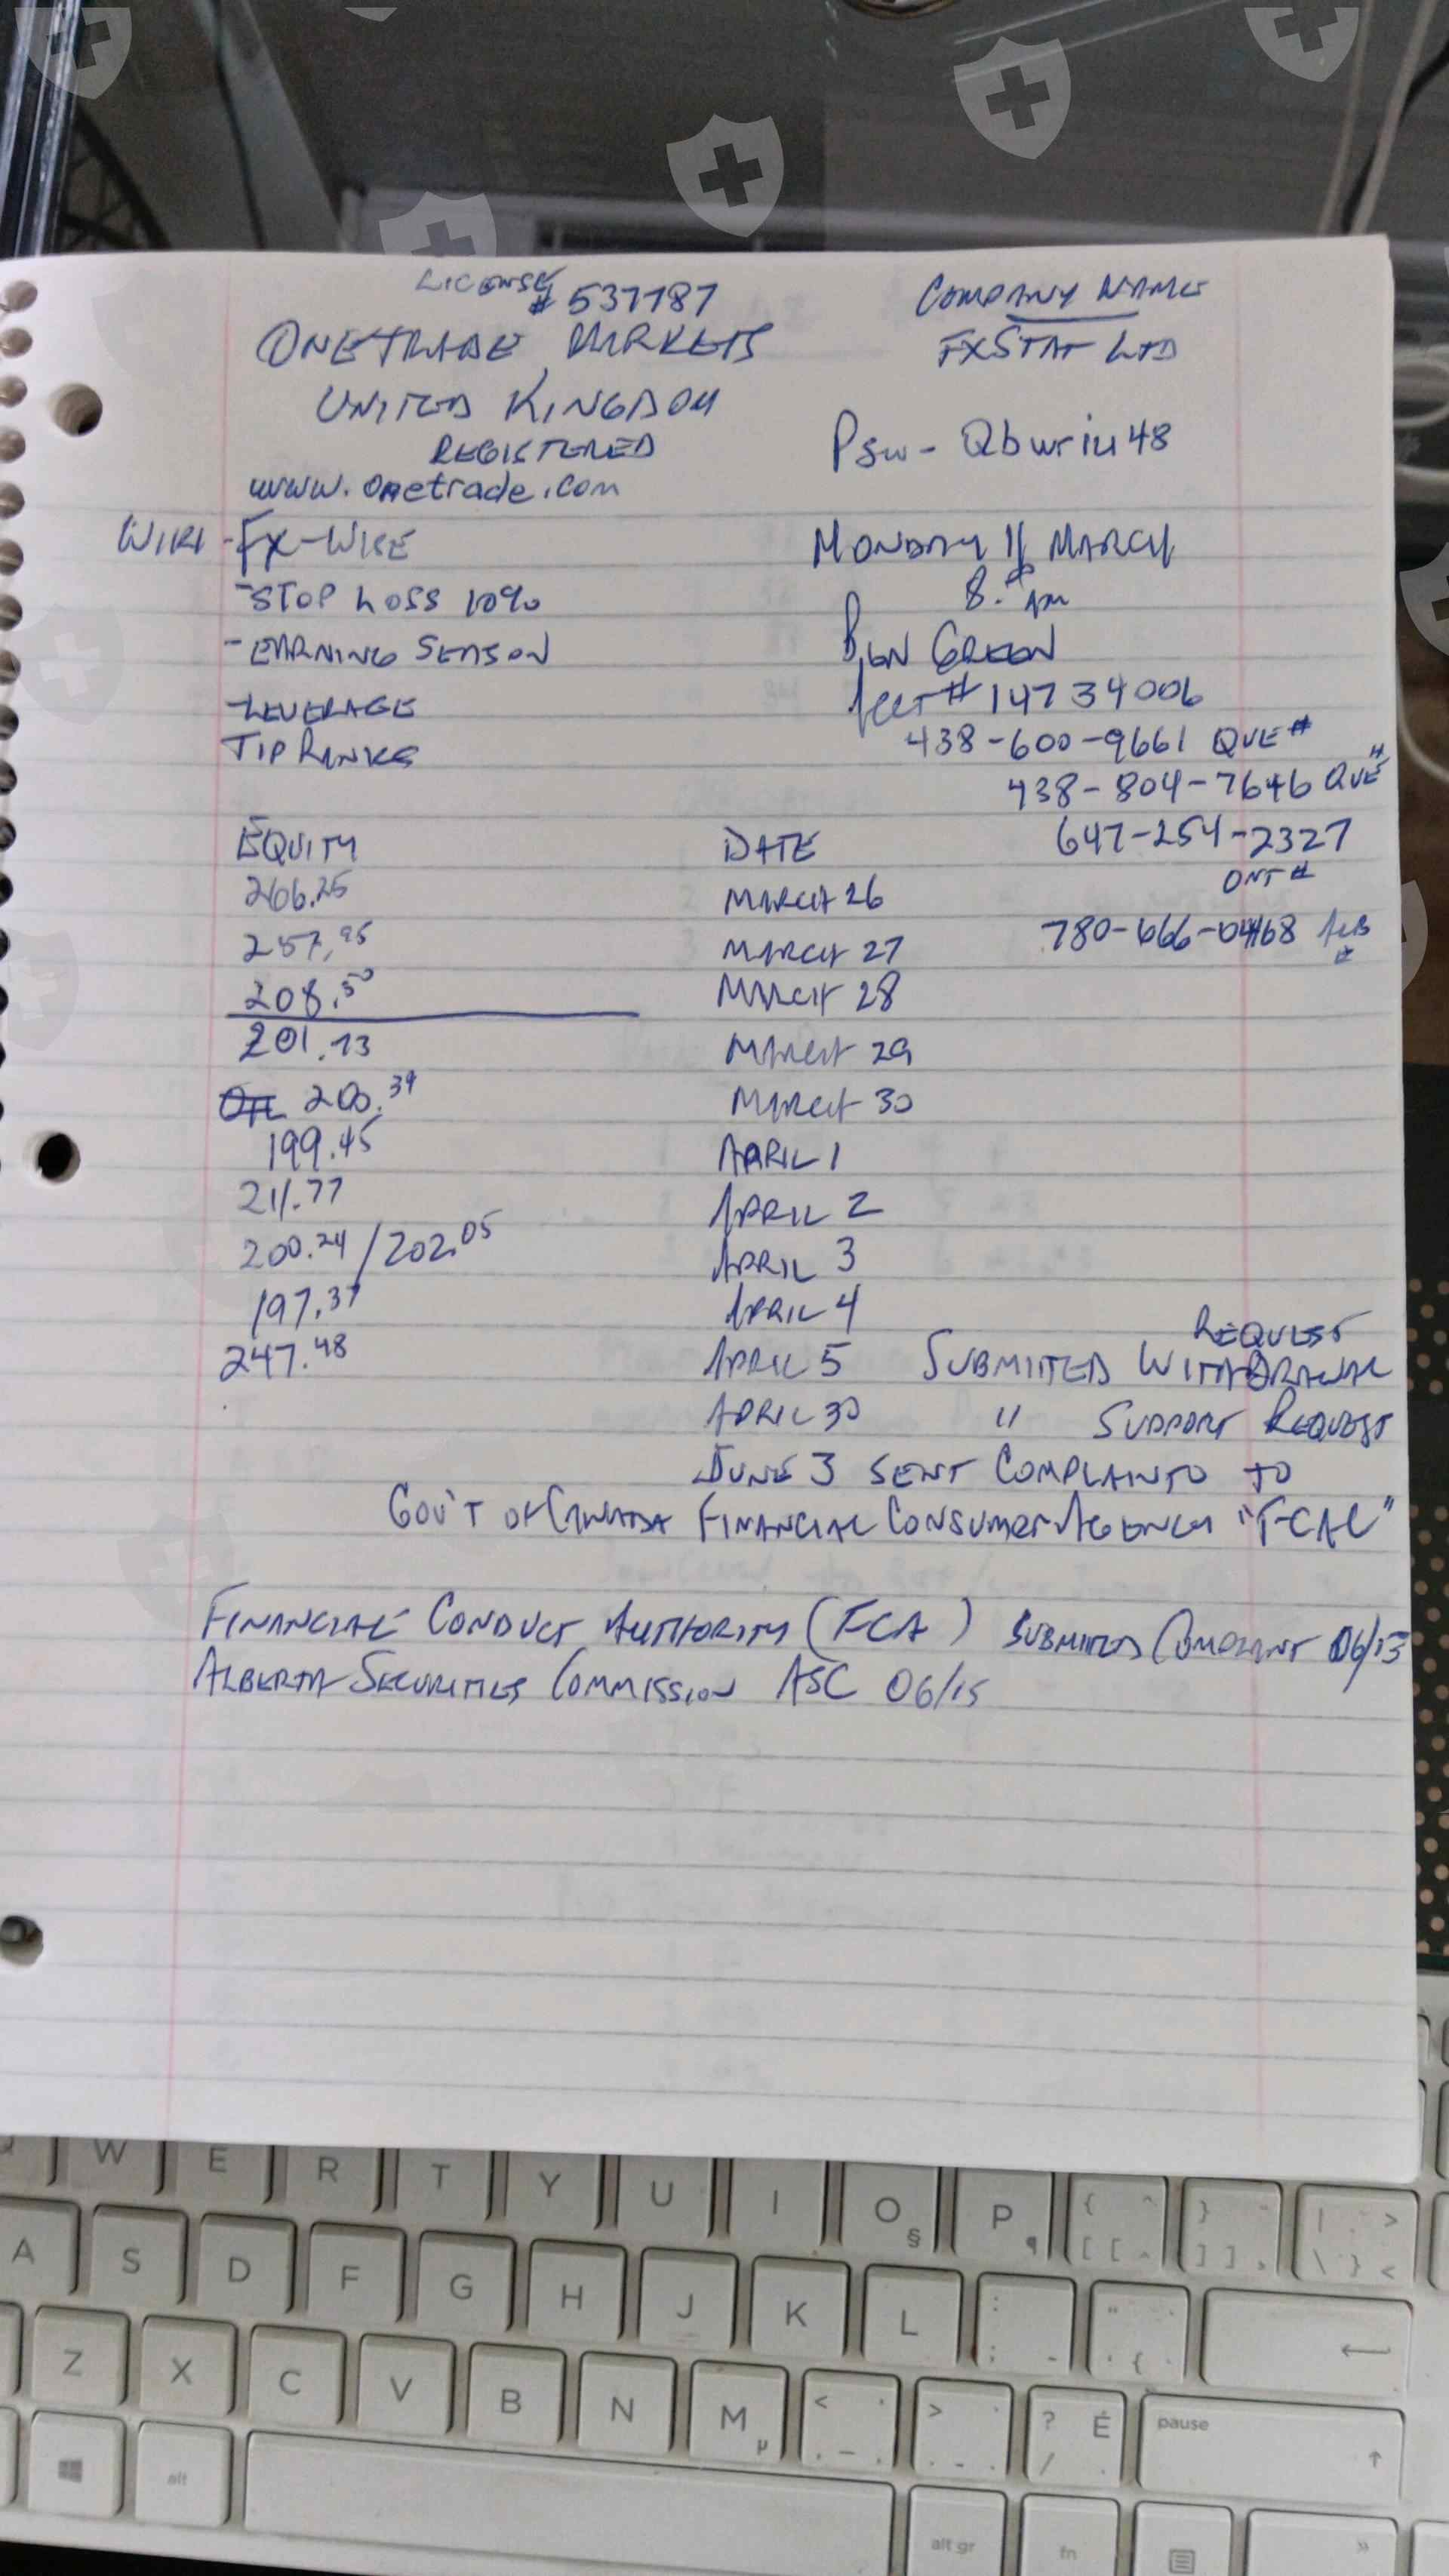 LICENSE
# 537187
COMPANY NAME
ONETRADE MARKETS
FXSTAT LTD
UNITED KINGDOM
REGISTERED
Psw - Qbwriu48
www.onetrade.com
WIKI - FX-WISE
MONDAY 11 MARCH
- STOP LOSS 10%
8.00 AM
- EARNING SEASON
BEN GREEN
- LEVERAGE
Acct # 14734006
TIP RANKS
438-600-9661 QUE #
438-804-7646 QUE #
EQUITY DATE
647-254-2327
ONT #
266.25 MARCH 26
780-666-0468 ALB #
257.95 MARCH 27
208.50 MARCH 28
201.13 MARCH 29
200.39 MARCH 30
199.45 APRIL 1
211.77 APRIL 2
200.24 / 202.05 APRIL 3
197.37 APRIL 4
REQUEST
247.48 APRIL 5 SUBMITTED WITHDRAWAL
APRIL 30 " SUPPORT REQUEST
JUNE 3 SENT COMPLAINTO TO
GOV'T OF CANADA FINANCIAL CONSUMER AGENCY "FCAC"
FINANCIAL CONDUCT AUTHORITY (FCA) SUBMITTED COMPLAINT 06/15
ALBERTA SECURITIES COMMISSION ASC 06/15
W E R T Y U I O P
§ ¶
A S D F G H J K L
Z X C V B N M
µ
? É
/
pause
alt
alt gr
fn